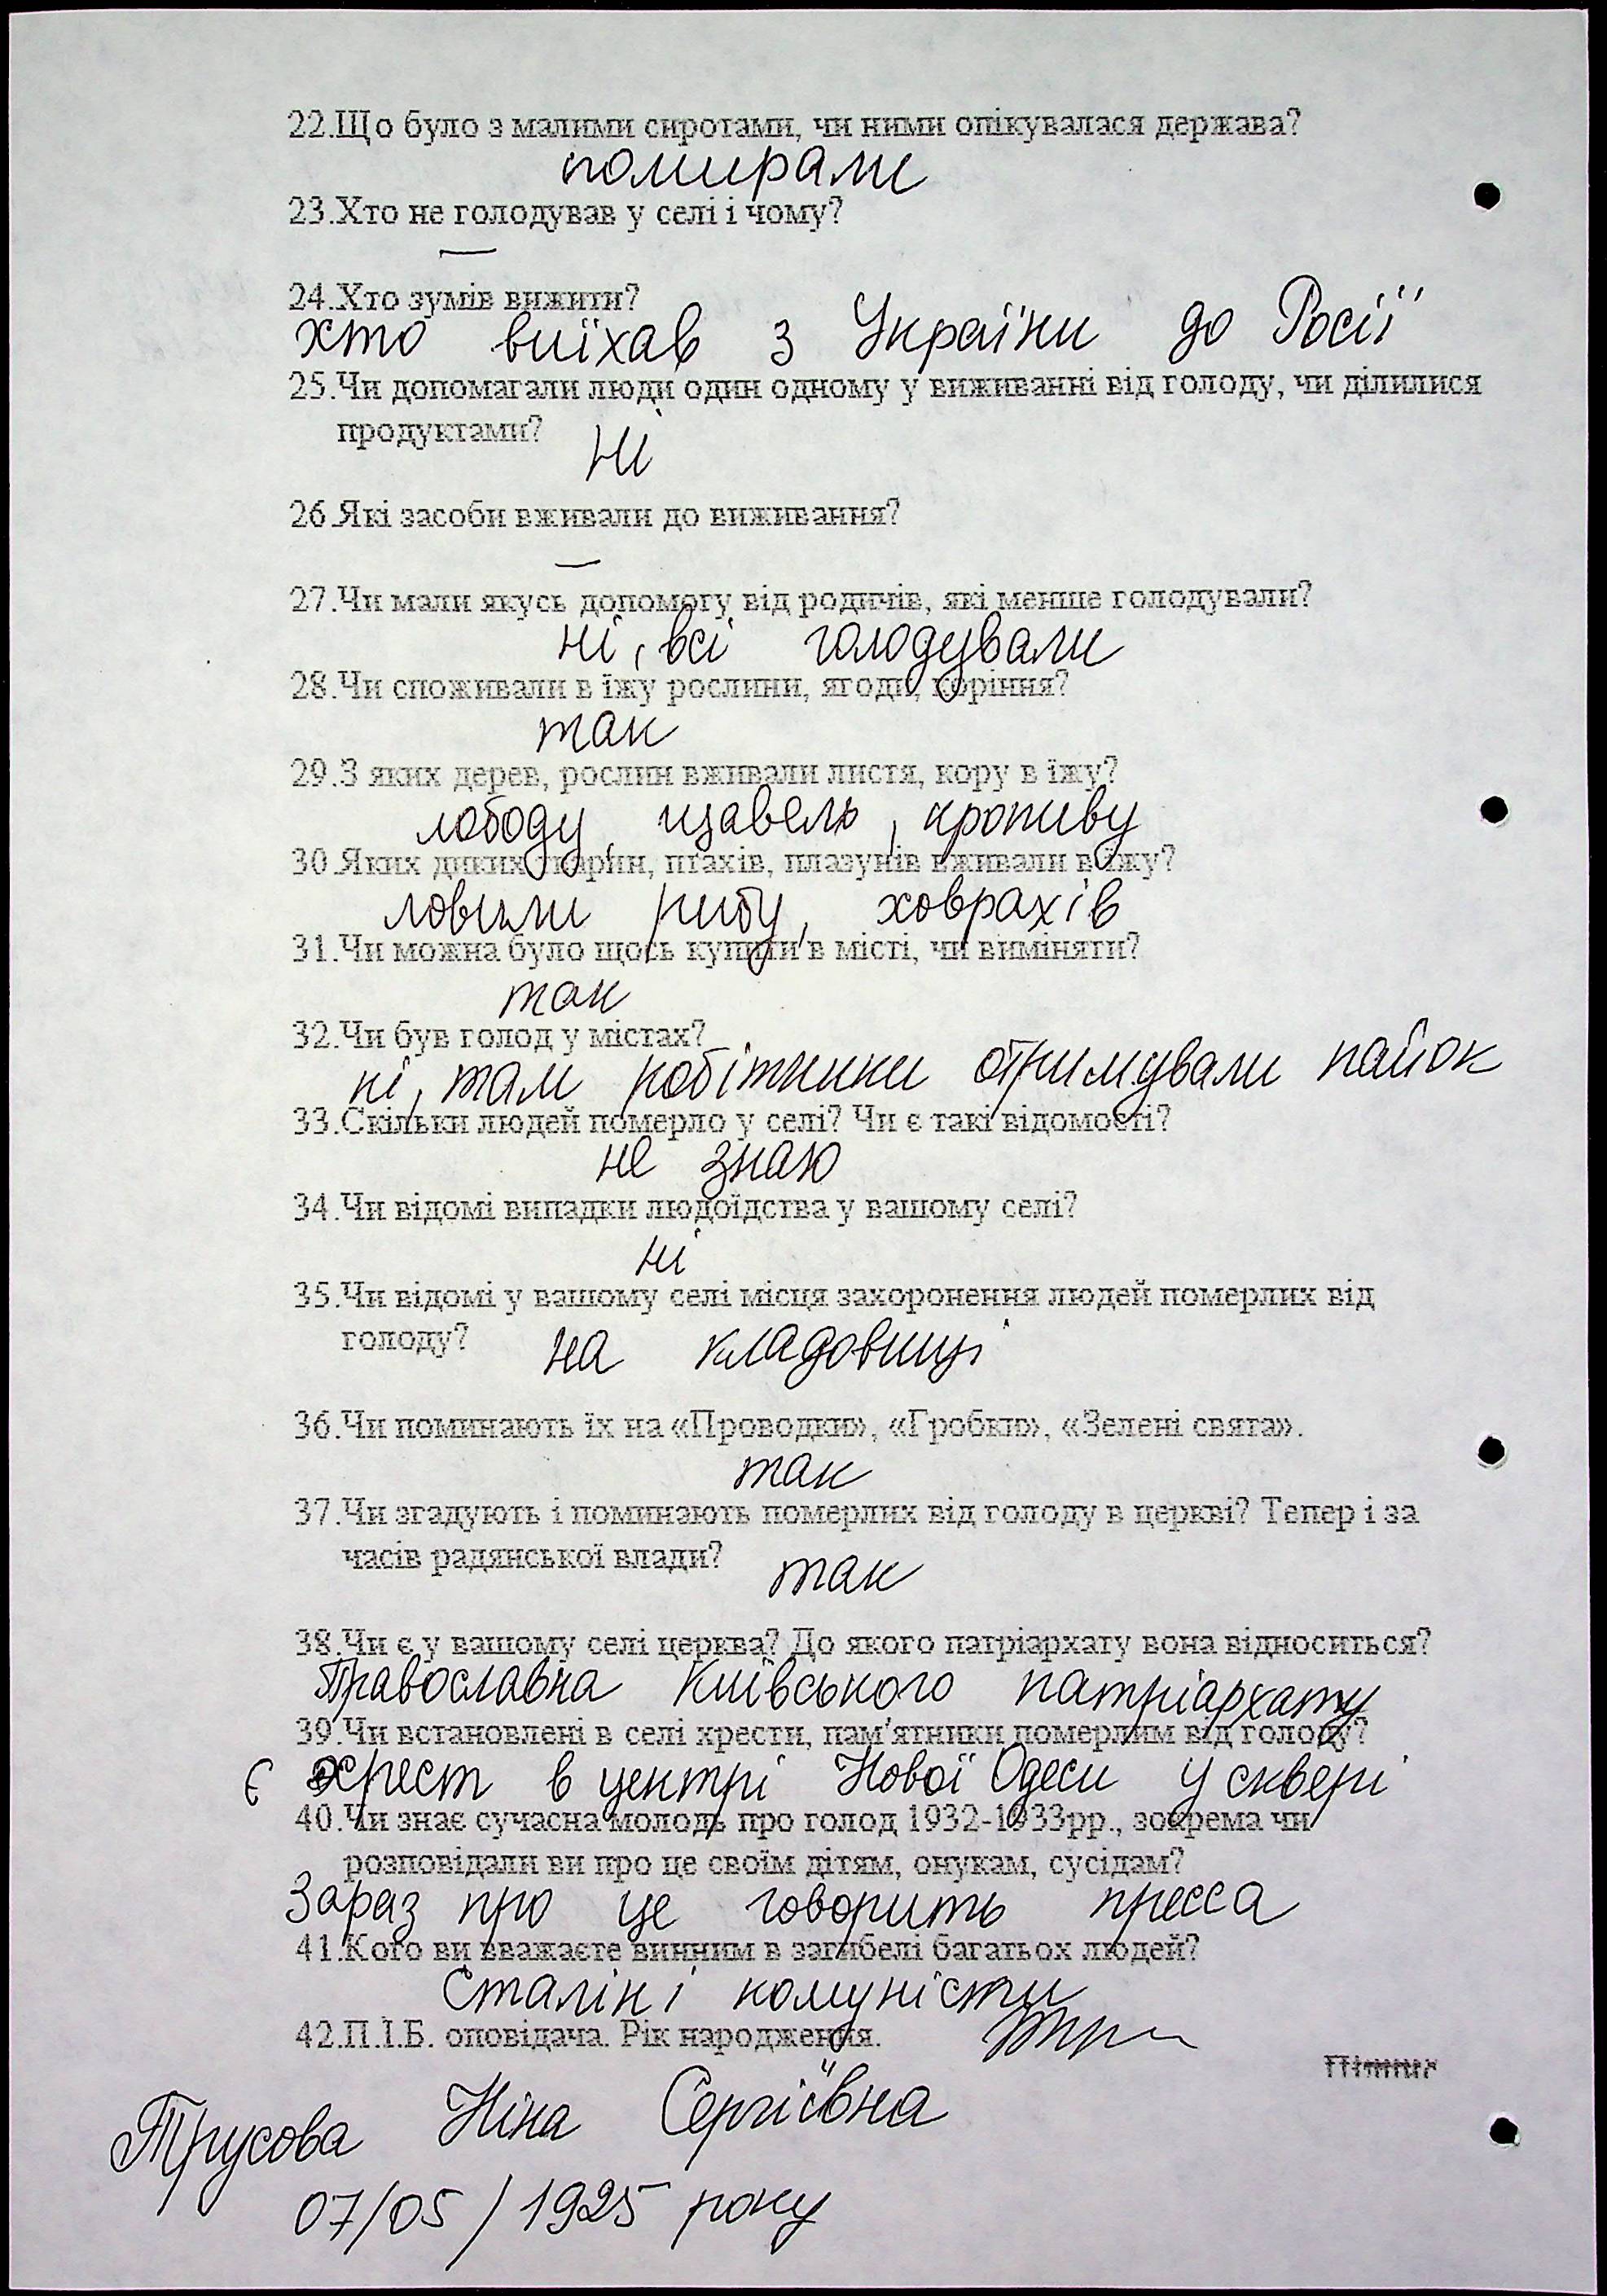 22.Що було з малими сиротами, чи ними опікувалася держава?
помирали
23.Хто не голодував у селі і чому?
—
24.Хто зумів вижити?
хто виїхав з України до Росії
25.Чи допомагали люди один одному у виживанні від голоду, чи ділилися
продуктами? Ні
26.Які засоби вживали до виживання?
—
27.Чи мали якусь допомогу від родичів, які менше голодували?
ні, всі голодували
28.Чи споживали в їжу рослини, ягоди, коріння?
так
29.З яких дерев, рослин вживали листя, кору в їжу?
лободу, щавель, кропиву
30.Яких диких тварин, птахів, плазунів вживали в їжу?
ловили рибу, ховрахів
31.Чи можна було щось купити в місті, чи виміняти?
так
32.Чи був голод у містах?
ні, там робітники отримували пайок
33.Скільки людей померло у селі? Чи є такі відомості?
не знаю
34.Чи відомі випадки людоїдства у вашому селі?
ні
35.Чи відомі у вашому селі місця захоронення людей померлих від
голоду? на кладовищі
36.Чи поминають їх на «Проводки», «Гробки», «Зелені свята».
так
37.Чи згадують і поминають померлих від голоду в церкві? Тепер і за
часів радянської влади? так
38.Чи є у вашому селі церква? До якого патріархату вона відноситься?
Православна Київського патріархату
39.Чи встановлені в селі хрести, пам'ятники померлим від голоду?
Є хрест в центрі Нової Одеси у сквері
40.Чи знає сучасна молодь про голод 1932-1933рр., зокрема чи
розповідали ви про це своїм дітям, онукам, сусідам?
Зараз про це говорить пресса
41.Кого ви вважаєте винним в загибелі багатьох людей?
Сталін і комуністи
42.П.І.Б. оповідача. Рік народження.
Трусова Ніна Сергіївна
07/05/1925 року